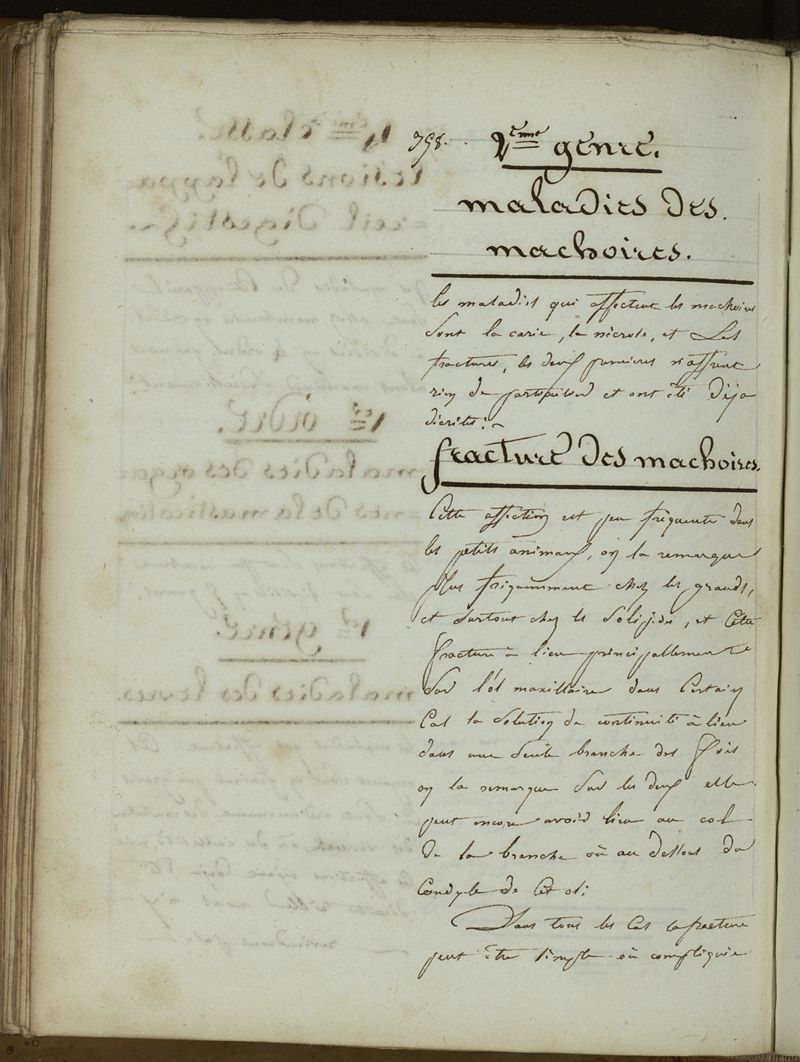 398.
2ème genre.
maladies des
machoires.
les maladies qui affectent les machoires
sont la carie, la nécrose, et Les
fractures, les deux premieres n'offrent
rien de particulier et ont été Déja
décrites.
fracture des machoires.
Cette affection est peu fréquente dans
les petits animaux, on la remarque
plus fréquemment chez les grands,
et surtout chez les solipèdes, et Cette
fracture à lieu principallement
sur l'os maxillaire dans Certain
Cas la solution de continuité à lieu
dans une seule branche des fois
on la remarque sur les deux elle
peut encore avoir lieu au col
De la branche où au dessous du
Condyle de Cet os;
Dans tous les Cas la fracture
peut être simple où compliquée